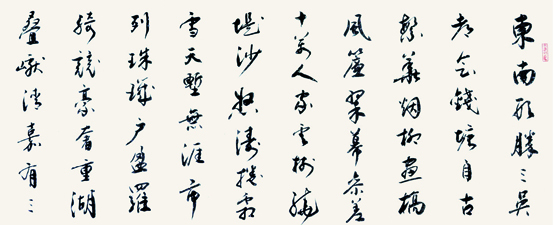 東南形勝三吳
都会錢塘自古
繁華烟柳畫橋
風簾翠幕參差
十萬人家雲樹繞
堤沙怒濤捲霜
雪天塹無涯市
列珠璣户盈羅
綺競豪奢重湖
疊巘清嘉有三